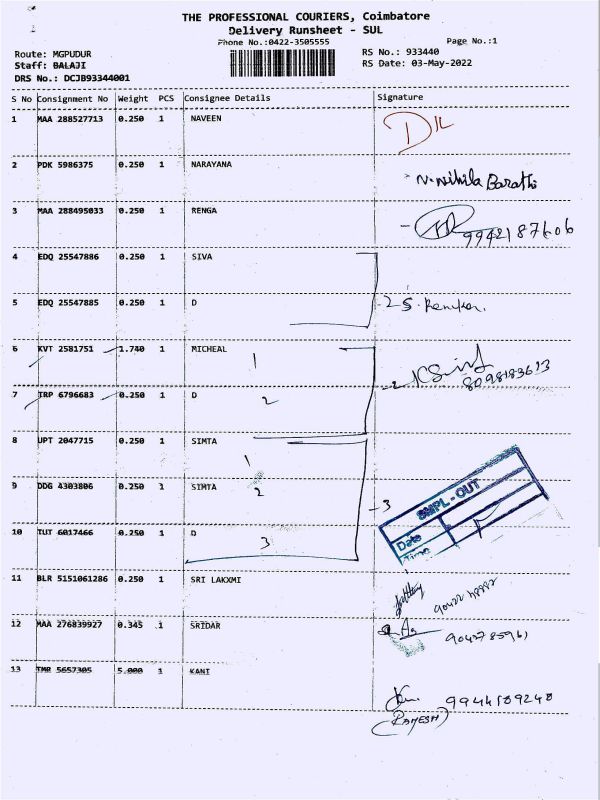 THE PROFESSIONAL COURIERS, Coimbatore
Delivery Runsheet - SUL
Phone No.:0422-3505555
Page No.:1
Route: MGPUDUR
RS No.: 933440
Staff: BALAJI
RS Date: 03-May-2022
DRS No.: DCJB93344001
S No Consignment No Weight PCS Consignee Details Signature
1 MAA 288527713 0.250 1 NAVEEN
2 PDK 5986375 0.250 1 NARAYANA
N. Nihila Barathi
3 MAA 288495033 0.250 1 RENGA
9942187606
4 EDQ 25547886 0.250 1 SIVA
5 EDQ 25547885 0.250 1 D
-2 S.
6 KVT 2581751 1.740 1 MICHEAL
1
8098183613
7 TRP 6796683 0.250 1 D
2
-2
8 UPT 2047715 0.250 1 SIMTA
1
9 DDG 4303806 0.250 1 SIMTA
2
-3
SMPL - OUT
Date
Time
10 TUT 6017466 0.250 1 D
3
11 BLR 5151061286 0.250 1 SRI LAKXMI
12 MAA 276839927 0.345 1 SRIDAR
13 TMR 5657305 5.000 1 KANI
9944589248
(RAMESH)